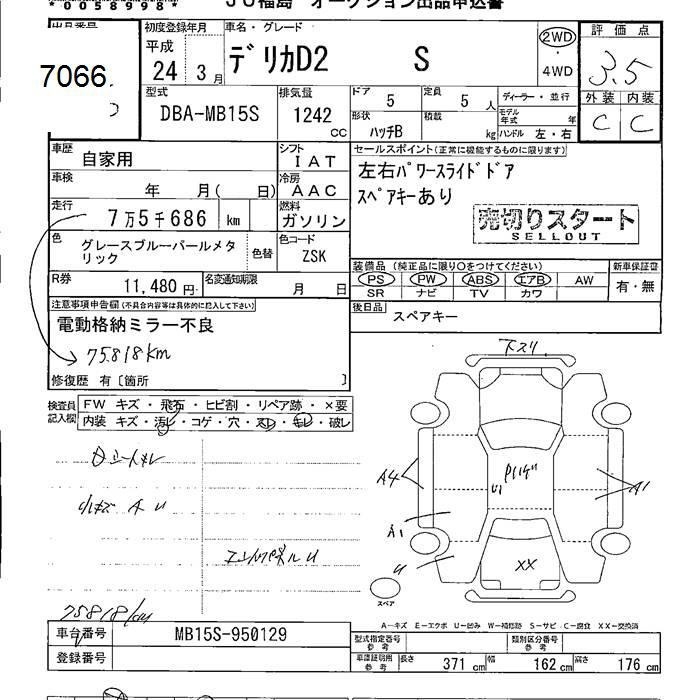 *00589988*
JU福島 オークション出品申込書
出品番号
7066
初度登録年月
平成
24年3月
車名・グレード
デリカD2 S
2WD
・
4WD
評価点
3.5
外装 内装
C C
型式
DBA-MB15S
排気量
1242
cc
ドア 5
定員 5 人
形状 ハッチB
積載 kg
ディーラー・並行
モデル年式 年
ハンドル 左・右
車歴
自家用
シフト
IAT
車検
年 月( 日)
冷房
AAC
走行
7万5千686 km
燃料
ガソリン
色
グレースブルーパールメタリック
色替
色コード
ZSK
R券
11,480円
名変通知期限
月 日
セールスポイント(正常に機能するものに限ります)
左右パワースライドドア
スペアキーあり
売切りスタート
SELLOUT
装備品(純正品に限り○をつけてください)
PS PW ABS エアB AW
SR ナビ TV カワ
新車保証書
有・無
後日品
スペアキー
注意事項申告欄(不具合内容等は具体的に記入して下さい)
電動格納ミラー不良
75,818km
修復歴 有〔箇所 〕
検査員記入欄
FW キズ・飛石・ヒビ割・リペア跡・×要
内装 キズ・汚レ・コゲ・穴・スレ・モレ・破レ
小キズ A U
75818km
下スリ
A4
A1
A1
U
XX
スペア
A-キズ E-エクボ U-凹み W-補修跡 S-サビ C-腐食 XX-交換済
車台番号
MB15S-950129
登録番号
型式指定番号
参考
類別区分番号
参考
車庫証明用
参考
長さ 371 cm
幅 162 cm
高さ 176 cm